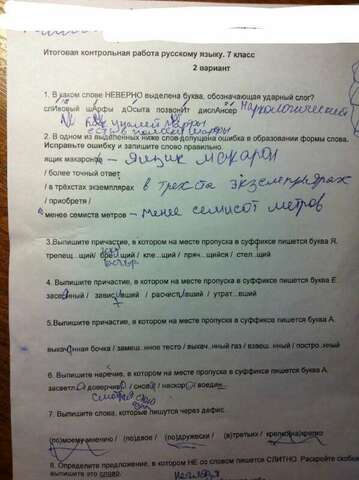 Итоговая контрольная работа русскому языку. 7 класс
2 вариант
1. В каком слове НЕВЕРНО выделена буква, обозначающая ударный слог?
слИвовый шАрфы дОсыта позвонИт диспАнсер Наркологический
есть в полоску шарфы
2. В одном из выделенных ниже слов допущена ошибка в образовании формы слова.
Исправьте ошибку и запишите слово правильно.
ящик макаронов – ящик макарон
/ более точный ответ
/ в трёхстах экземплярах в трехста экземплярах
/ приобретя /
менее семиста метров – менее семисот метров
3.Выпишите причастие, в котором на месте пропуска в суффиксе пишется буква Я.
трепещ...щий/ бре...щий / кле...щий / пряч...щийся / стел...щий
4. Выпишите причастие, в котором на месте пропуска в суффиксе пишется буква Е.
5.Выпишите причастие, в котором на месте пропуска в суффиксе пишется буква А.
выкачанная бочка / замеш...нное тесто / выкач...нный газ / взвеш...нный / постро...нный
6. Выпишите наречие, в котором на месте пропуска в суффиксе пишется буква А.
7. Выпишите слова, которые пишутся через дефис.
(по)моему мнению / (по)двое / (по)дружески / (в)третьих / крепко(на)крепко
8. Определите предложение, в котором НЕ со словом пишется СЛИТНО. Раскройте скобки
выпишите это слово.